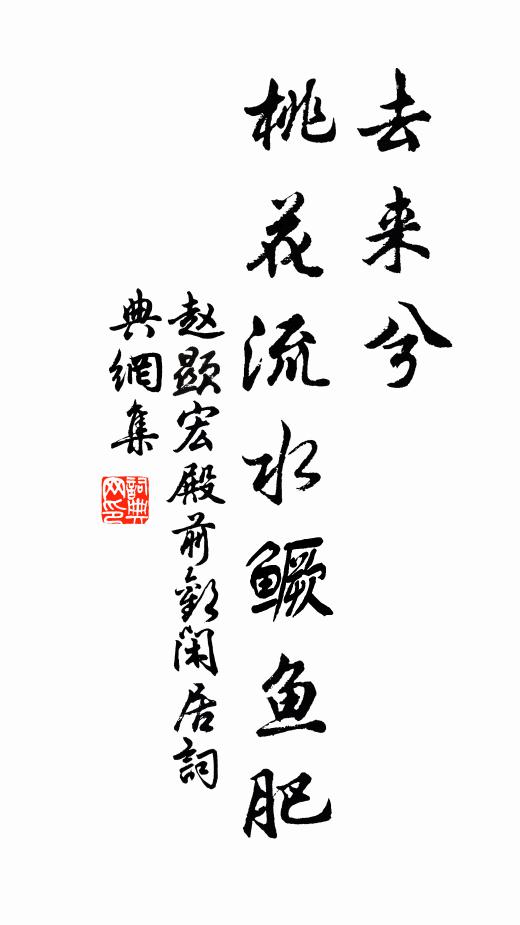 去来兮
桃花流水鳜鱼肥
赵顕宏殿前歡闲居詞
典網集
詞典
网印